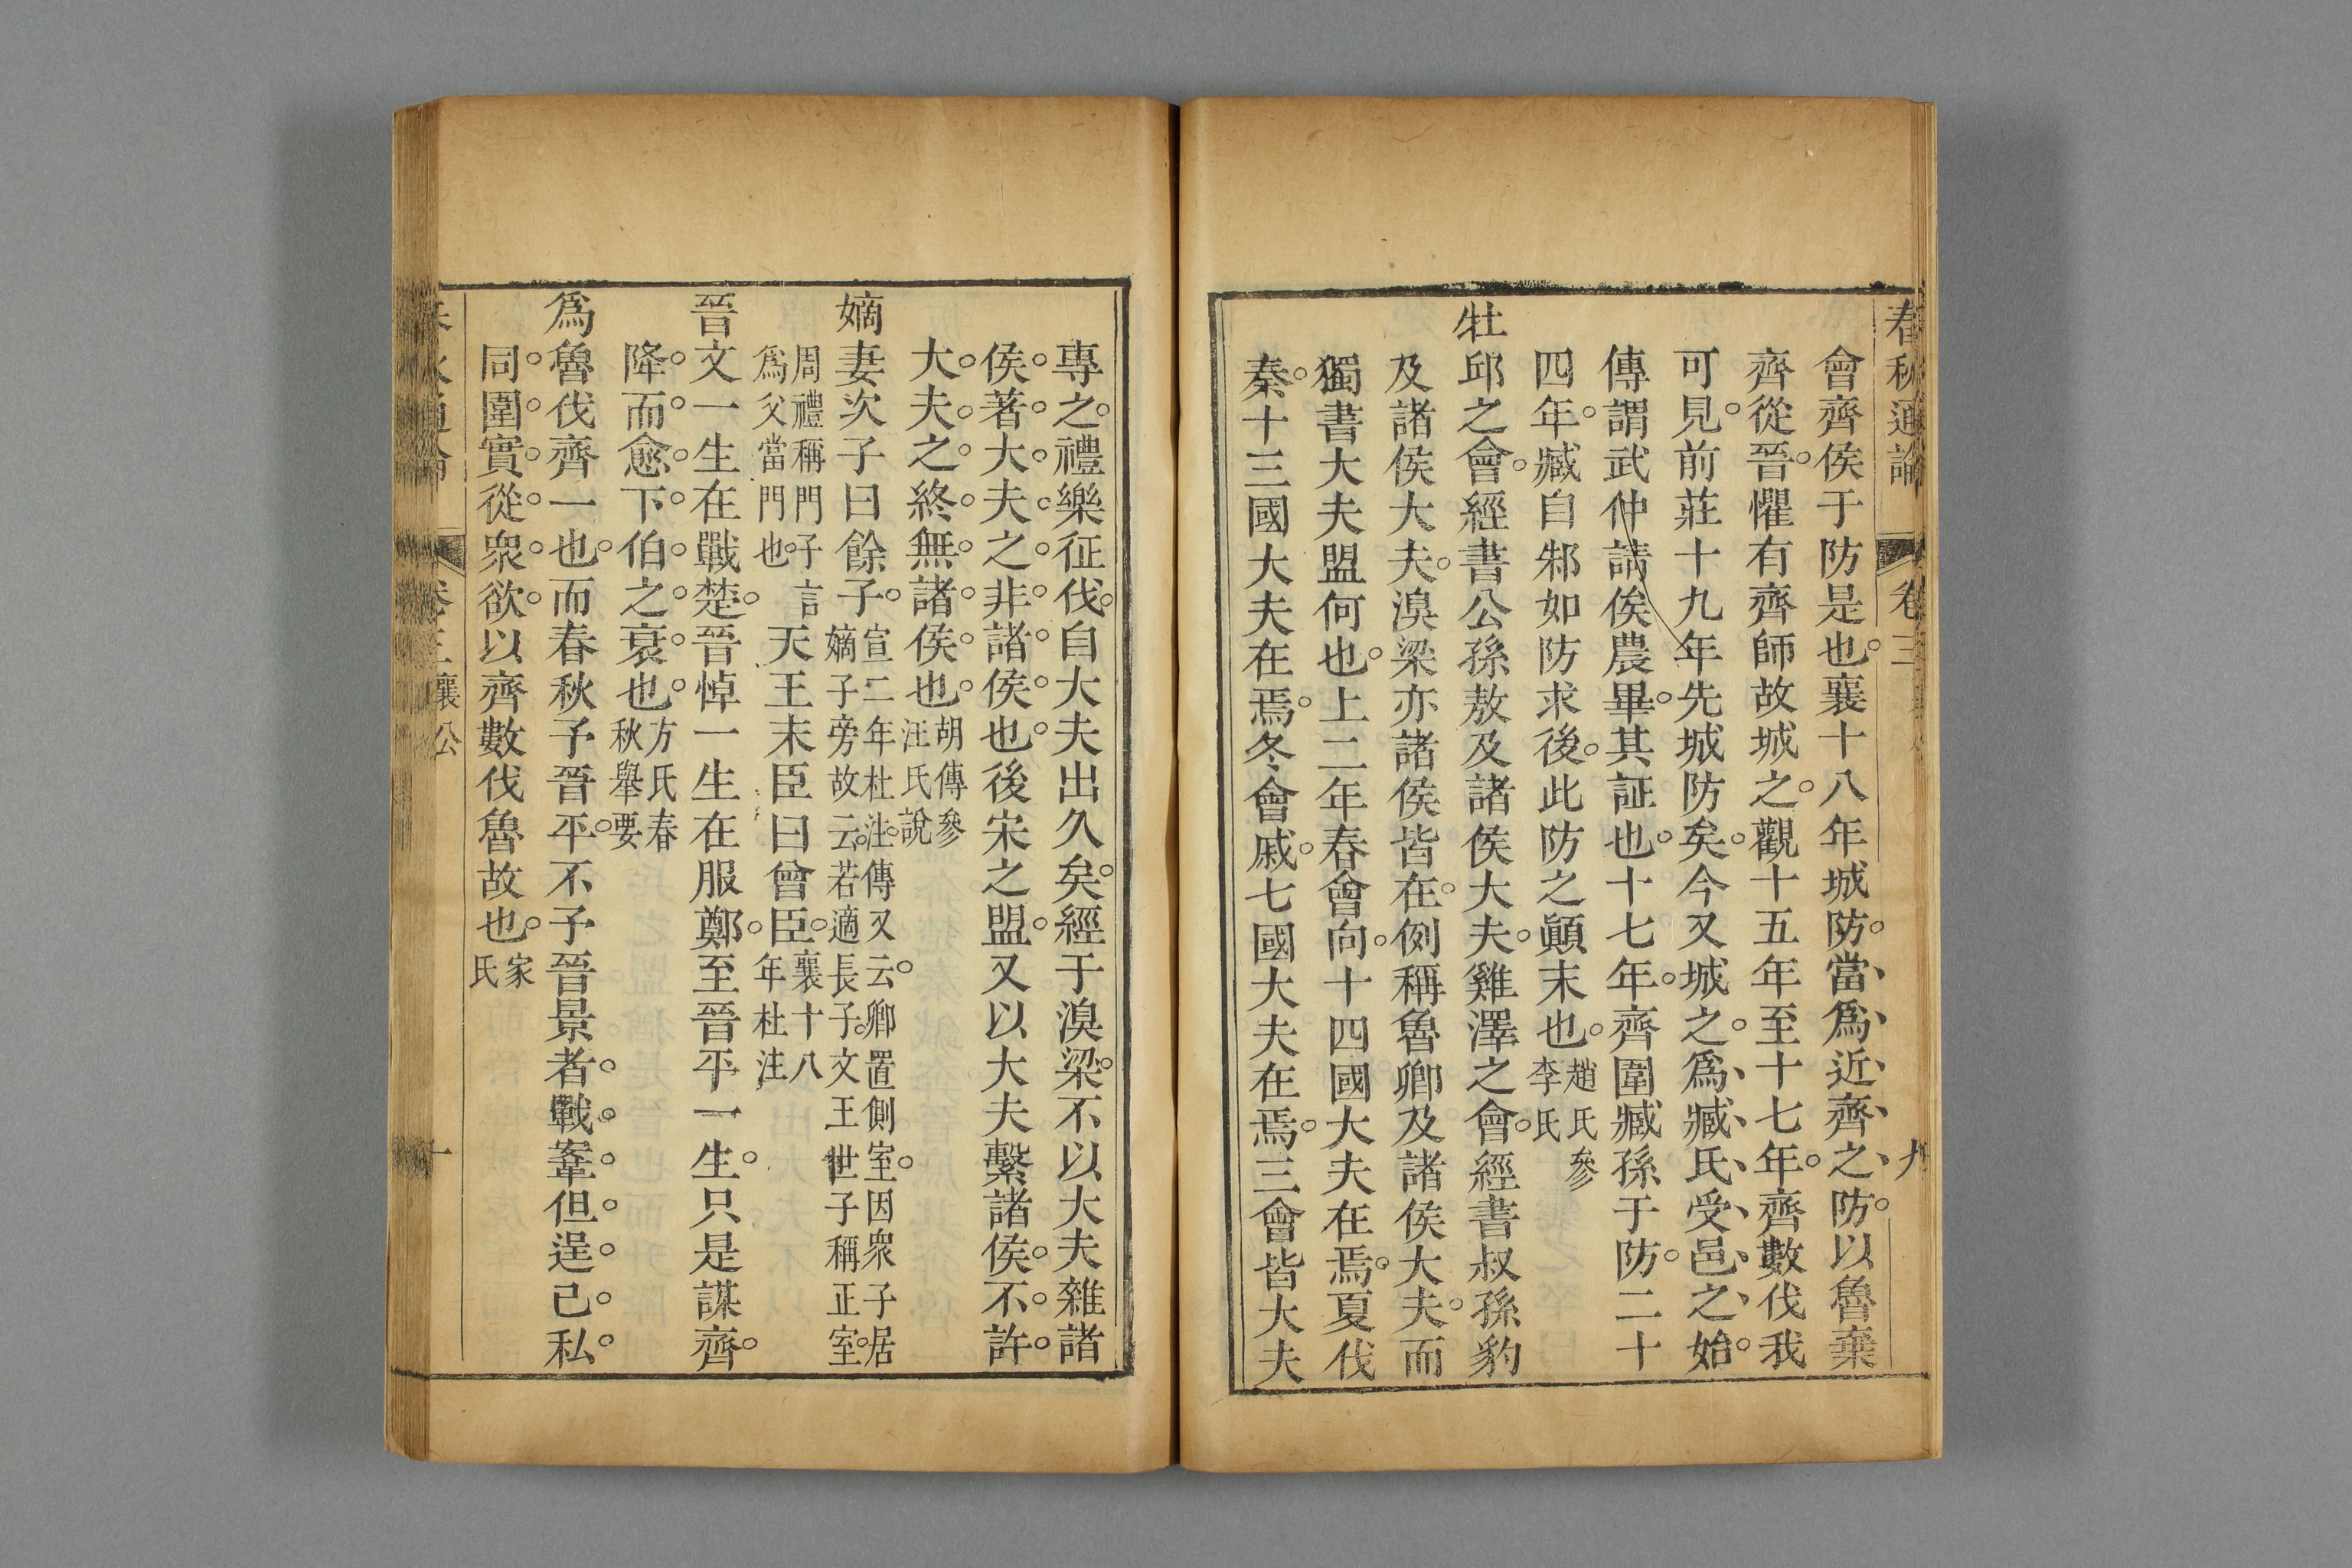 春秋通論 卷三 九
會齊侯于防是也。襄十八年城防。當爲近齊之防。以魯棄
齊從晉。懼有齊師故城之。觀十五年至十七年。齊數伐我
可見。前莊十九年先城防矣。今又城之。爲臧氏受邑之始。
傳謂武仲請俟農畢。其証也。十七年。齊圍臧孫于防。二十
四年。臧自邾如防求後。此防之顚末也。趙氏參李氏
牡邱之會。經書公孫敖及諸侯大夫。雞澤之會。經書叔孫豹
及諸侯大夫。湨梁亦諸侯皆在。例稱魯卿及諸侯大夫。而
獨書大夫盟何也。上二年春會向。十四國大夫在焉。夏伐
秦。十三國大夫在焉。冬會戚。七國大夫在焉。三會皆大夫
專之。禮樂征伐。自大夫出久矣。經于湨梁。不以大夫雜諸
侯。著大夫之非諸侯也。後宋之盟。又以大夫繫諸侯。不許
大夫之終無諸侯也。胡傳參汪氏說
嫡妻次子曰餘子。宣二年杜注。傳又云。卿置側室。因衆子居嫡子旁故云。若適長子。文王世子稱正室。
周禮稱門子言爲父當門也。天王末臣曰曾臣。襄十八年杜注
晉文一生在戰楚。晉悼一生在服鄭。至晉平一生。只是謀齊。
降而愈下。伯之衰也。方氏春秋舉要
爲魯伐齊一也。而春秋予晉平。不予晉景者。戰鞌但逞己私。
同圍實從衆欲。以齊數伐魯故也。家氏
卷三 襄公 十